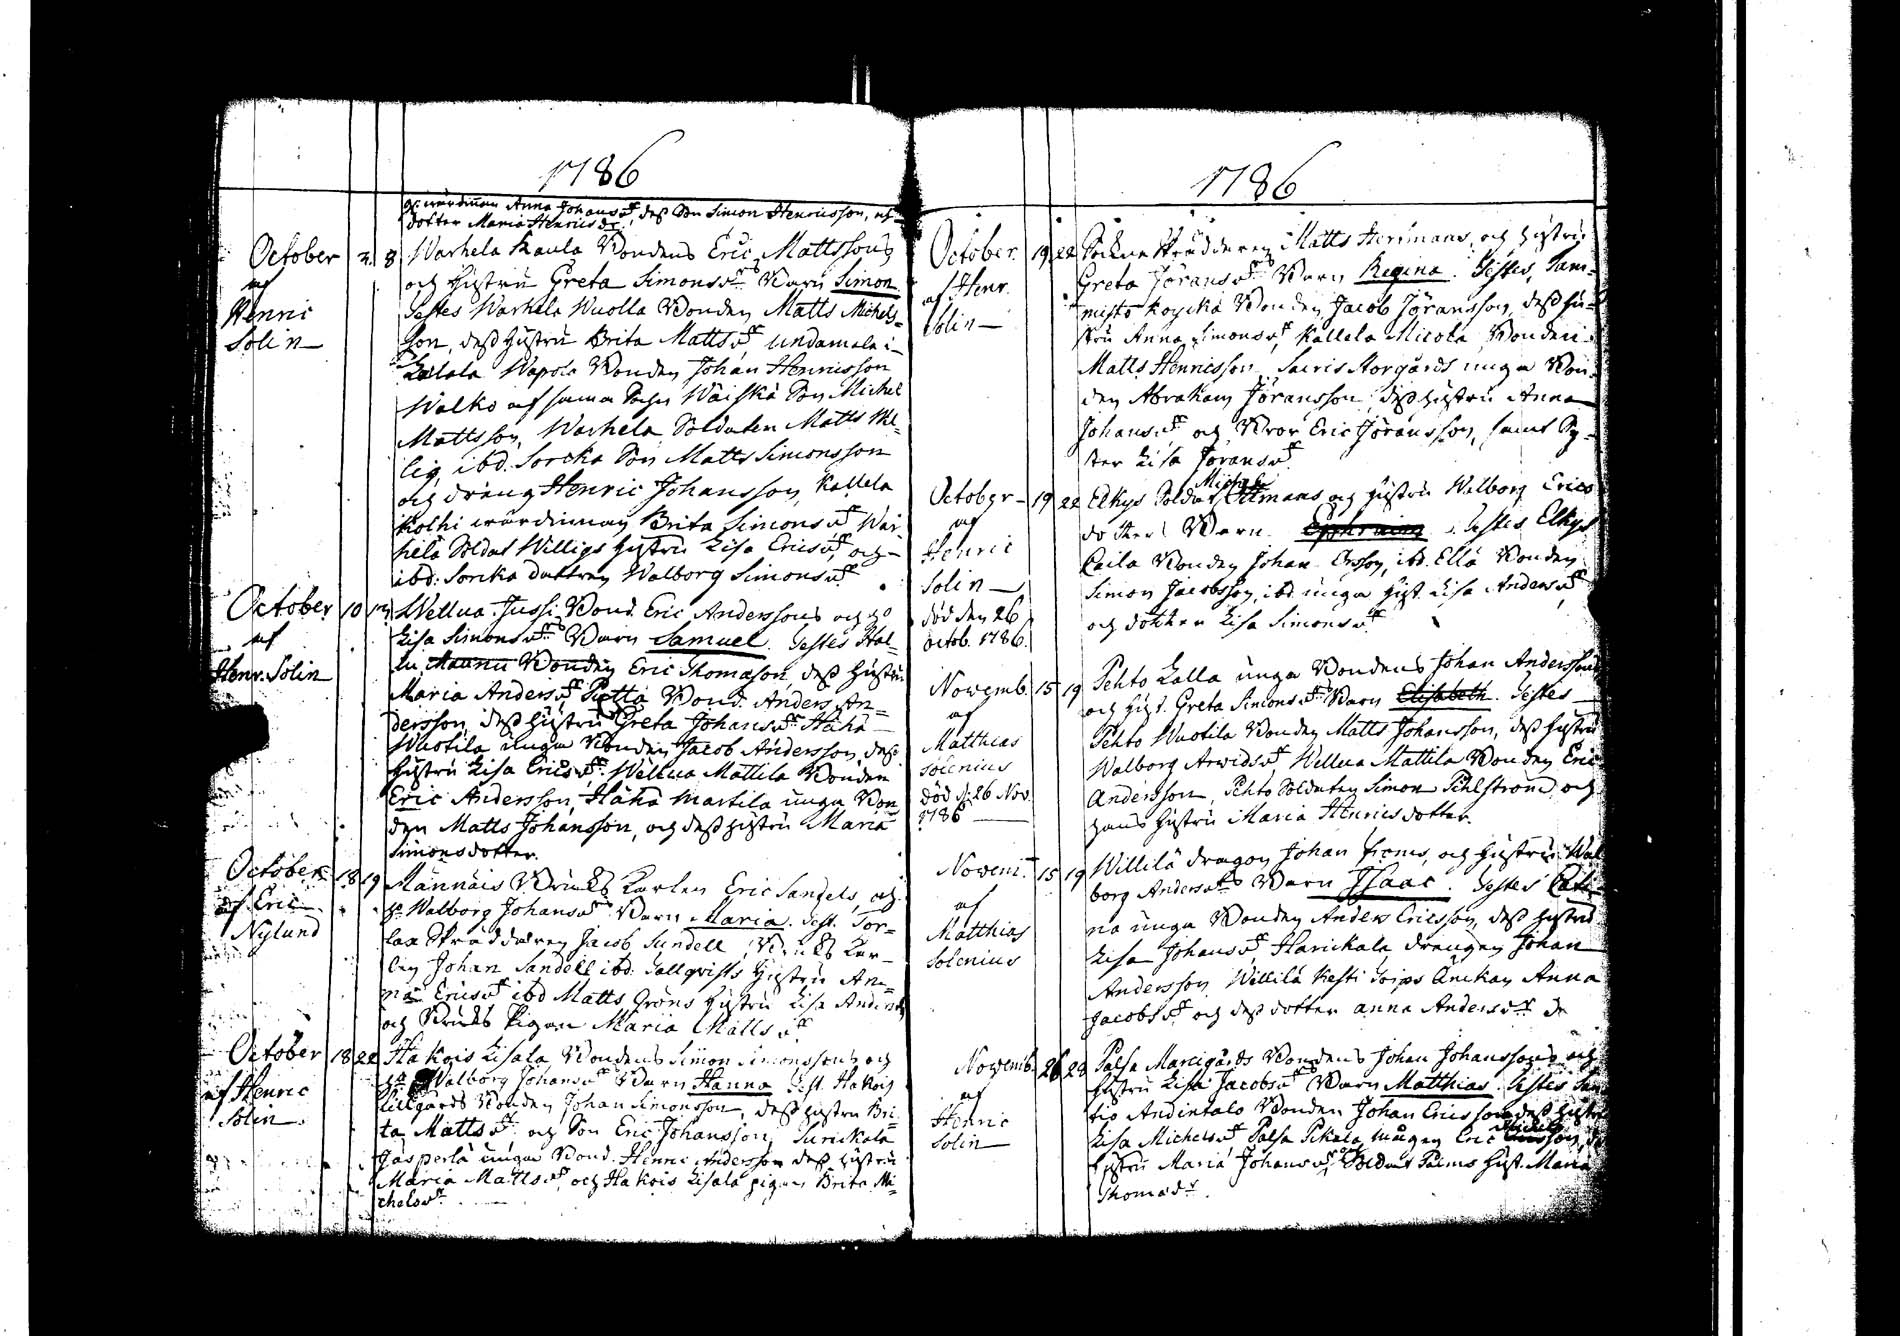 1786
wärdinnan Anna Johansdr, dess Son Simon Henricsson, och
dotter Maria Henricsdr.
October 2. 8 Warhela Kaula Bondens Eric Mattssons
af och Hustru Greta Simonsdrs Barn Simon
Henric Testes Warhela Wuolla Bonden Matts Michels-
Solin son, dess Hustru Brita Mattsdr undamala i
Lalala Wapola Bonden Johan Henricsson
Walko af samma Sochn Wäiskä Son Michel
Mattsson, Warhela Soldaten Matts Wil-
lig, ibd. Sorcka Son Matts Simonsson
och dräng Henric Johansson, Kallela
Kolhi wärdinnan Brita Simonsdr War-
hela Soldat Willigs Hustru Lisa Ericsdr, och
ibd. Sorcka dottren Walborg Simonsdr.
October 10 13 Wellua Jussi Bond. Eric Anderssons och h:o
af Lisa Simonsdrs Barn Samuel. Testes Hal-
Henr. Solin lu Maunu Bonden Eric Thomasson, dess Hustru
Maria Andersdr, Pietta Bond. Anders An-
dersson, dess Hustru Greta Johansdr Hähä
Wuotila unga Bonden Jacob Andersson, dess
Hustru Lisa Ericsdr. Wellua Mattila Bonden
Eric Andersson, Hähä Martila unga Bon
den Matts Johansson, och dess Hustru Maria
Simonsdotter.
October 18 19 Männäis Bruks Karlen Eric Sandels, och
af Eric h:o Walborg Johansdrs Barn Maria. Test. Tor-
Nylund laa Skräddaren Jacob Sundell, Bruks Kar-
len Johan Sandell ibd. Hallqvists Hustru An-
na Ericsdr ibd Matts Gröns Hustru Lisa Andersdr
och Bruks Pigan Maria Mattsdr
October 18 22 Hakois Lisala Bondens Simon Simonssons och
af Henric Walborg Johansdrs Barn Hanna. Test. Hakois
Solin. Lillgårds Bonden Johan Simonsson, dess Hustru Bri-
ta Mattsdr och Son Eric Johansson, Surickala
Jasperla unga Bond. Henric Andersson dess Hustru
Maria Mattsdr, och Hakois Lisala pigan Brita Mi-
chelsdr
1786
October. 19 22 Sochne Skräddaren Matts Hermans, och Hustru
af Henr. Greta Jöransdrs Barn Regina. Testes, Tam-
Solin misto Koyckä Bonden Jacob Jöransson, dess Hu-
stru Anna Simonsdr, Kallela Micola Bonden
Matts Henricsson, Saeris Storgårds unga Bon-
den Abraham Jöransson, dess Hustru Anna
Johansdr och Bror Eric Jöransson, samt Sy-
ster Lisa Joransdr.
October 19 22 Elkys Soldat Michels Ollmans och Hustru Walborg Erics
af dotters Barn Ephraim. Testes Elkys
Henric Caila Bonden Johan Ersson, ibd. Ella Bonden
Solin Simon Jacobsson, ibd. unga Hust. Lisa Andersdr
död den 26 och dotter Lisa Simonsdr
octob. 1786.
Novemb. 15 19 Pehto Lalla unga Bondens Johan Anderssons
af och Hust. Greta Simonsdrs Barn Elisabeth. Testes
Matthias Pehto Wuotila Bonden Matts Johansson, dess Hustru
Solenius Walborg Arwidsdr Wellua Mattila Bonden Eric
död d. 26 Nov. Andersson, Pehto Soldaten Simon Pihlström och
1786 hans Hustru Maria Henricsdotter.
Novem. 15 19 Willilä dragon Johan Froms, och Hustru Wal
af borg Andersdrs Barn Isaac. Testes Cati-
Matthias na unga Bonden Anders Ericsson, dess Hustru
Solenius Lisa Johansdr, Harickala drängen Johan
Andersson, Willilä Kesti Torps Änckan Anna
Jacobsdr och dess dotter Anna Andersdr
Novemb. 26 28 Palsa Marcigårds Bondens Johan Johanssons och
af Hustru Lisa Jacobsdrs Barn Matthias. Testes
Henric Andintalo Bonden Johan Ericsson dess Hustru
Solin Lisa Michelsdr Palsa Pikala mågen Eric Michels
Hustru Maria Johansdr, Soldat Palms Hust. Maria
Thomædr.